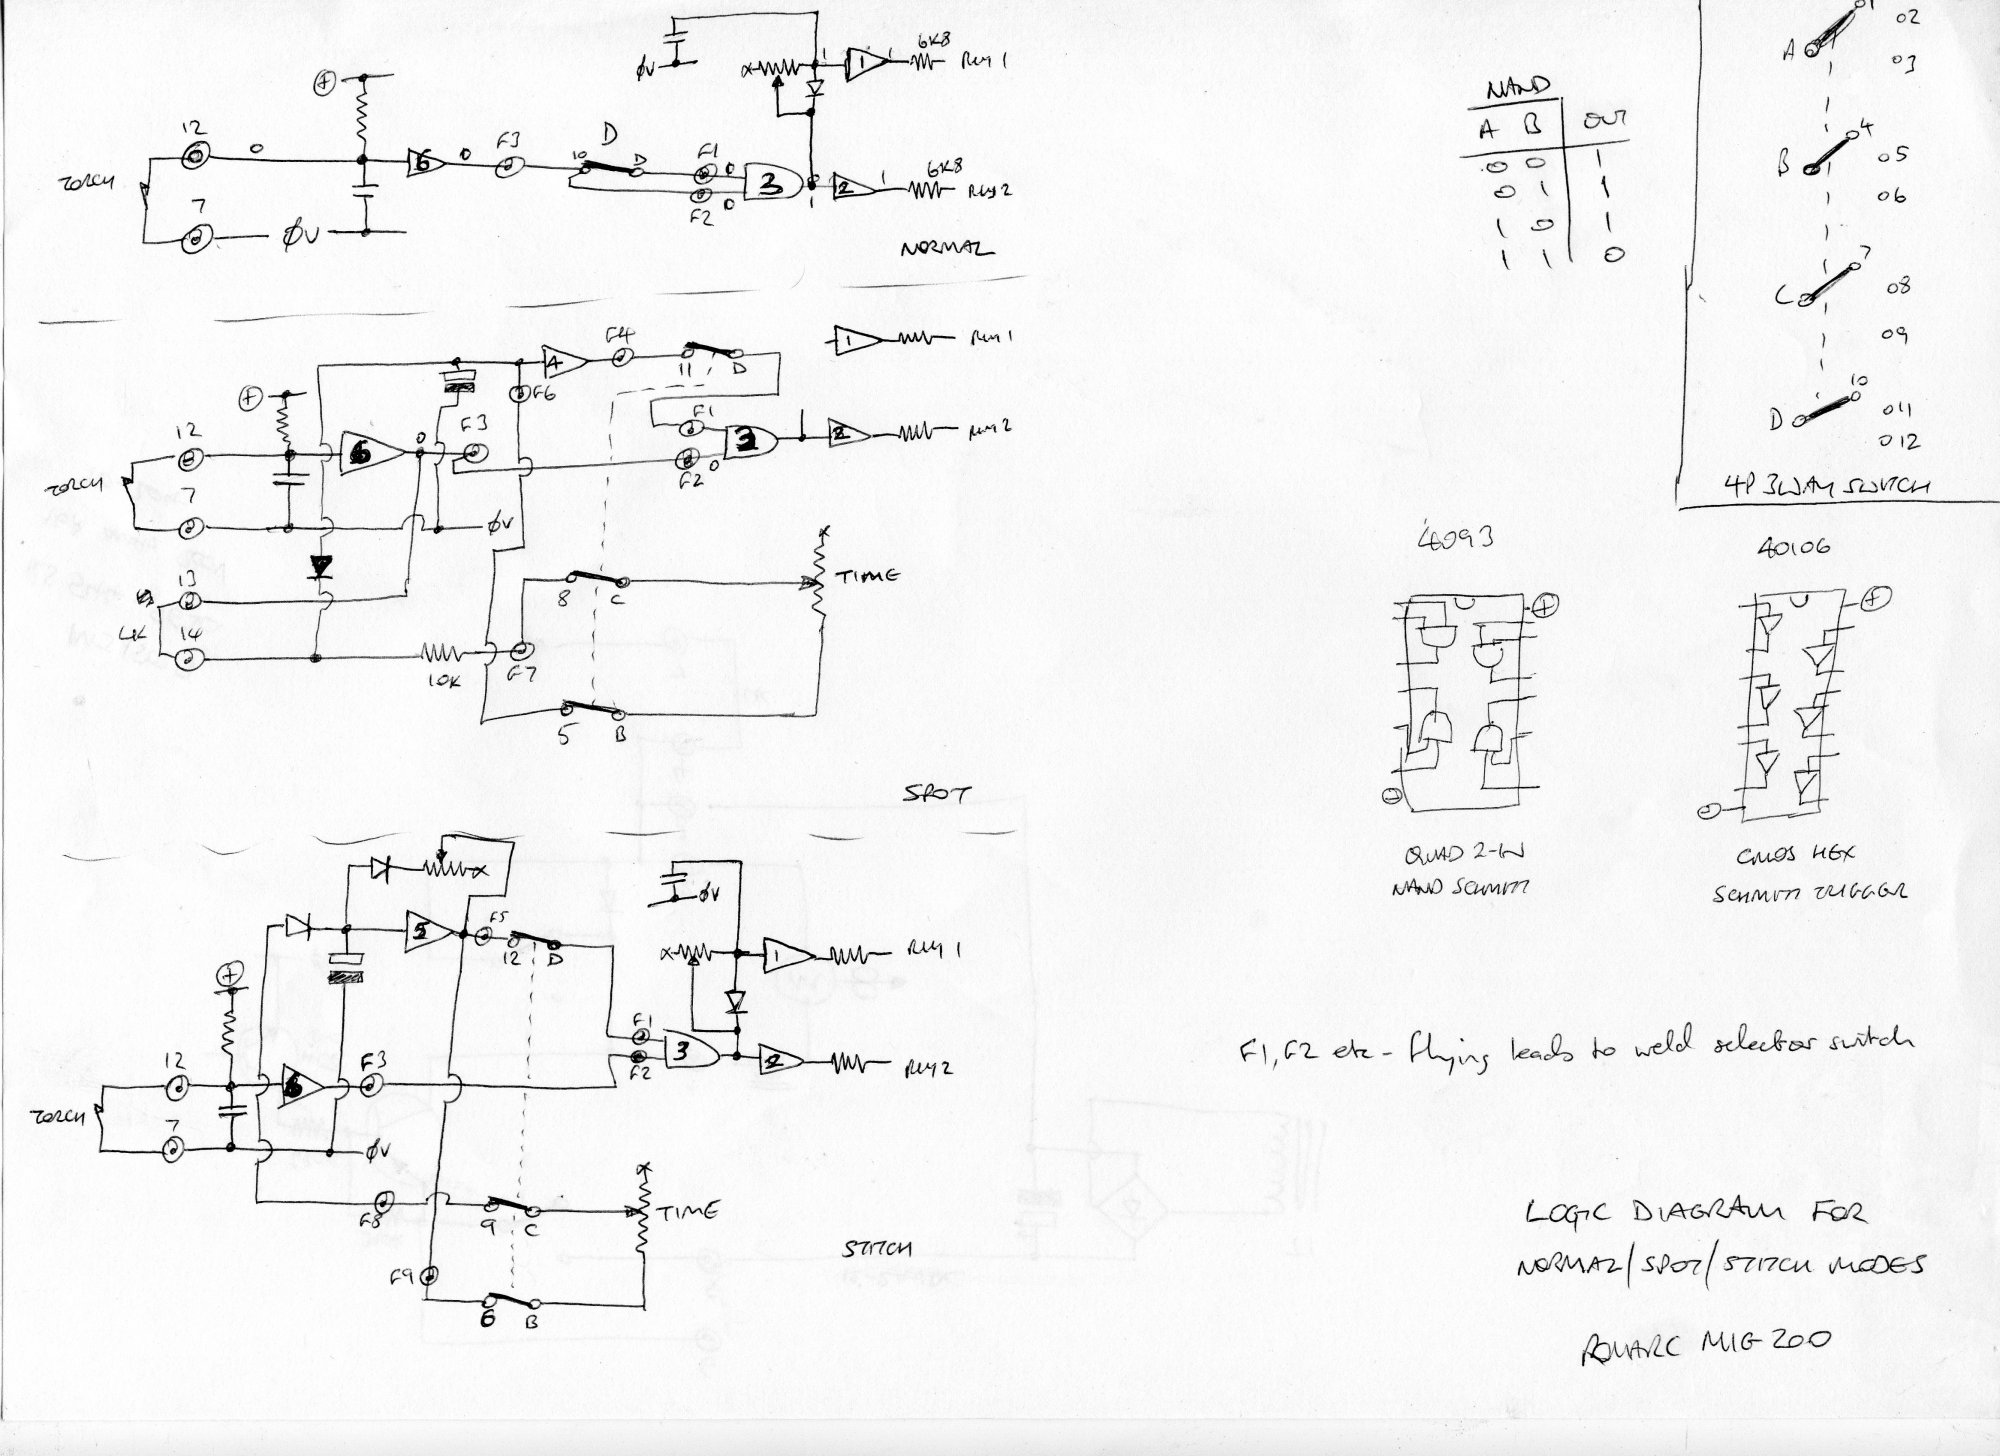 ØV
6K8
RLY 1
1
+
12
0
6
0
F3
D
10
D
F1
0
3
F2
0
TORCH
7
ØV
2
1
6K8
RLY 2
NORMAL
4
F4
11
D
1
RLY 1
F6
+
12
6
0
F3
F1
3
2
RLY 2
F2
0
TORCH
7
ØV
13
14
10K
F7
8
C
TIME
5
B
SPOT
ØV
5
F5
12
D
1
RLY 1
+
F1
3
2
RLY 2
F2
12
6
F3
TORCH
7
ØV
F8
9
C
TIME
F9
6
B
STITCH
NAND
A B OUT
0 0 1
0 1 1
1 0 1
1 1 0
A
01
02
03
B
4
05
06
C
7
08
09
D
10
011
012
4P 3WAY SWITCH
4093
40106
+
+
QUAD 2-IN
NAND SCHMITT
CMOS HEX
SCHMITT TRIGGER
F1, F2 etc - flying leads to weld selector switch
LOGIC DIAGRAM FOR
NORMAL/SPOT/STITCH MODES
MIG 200